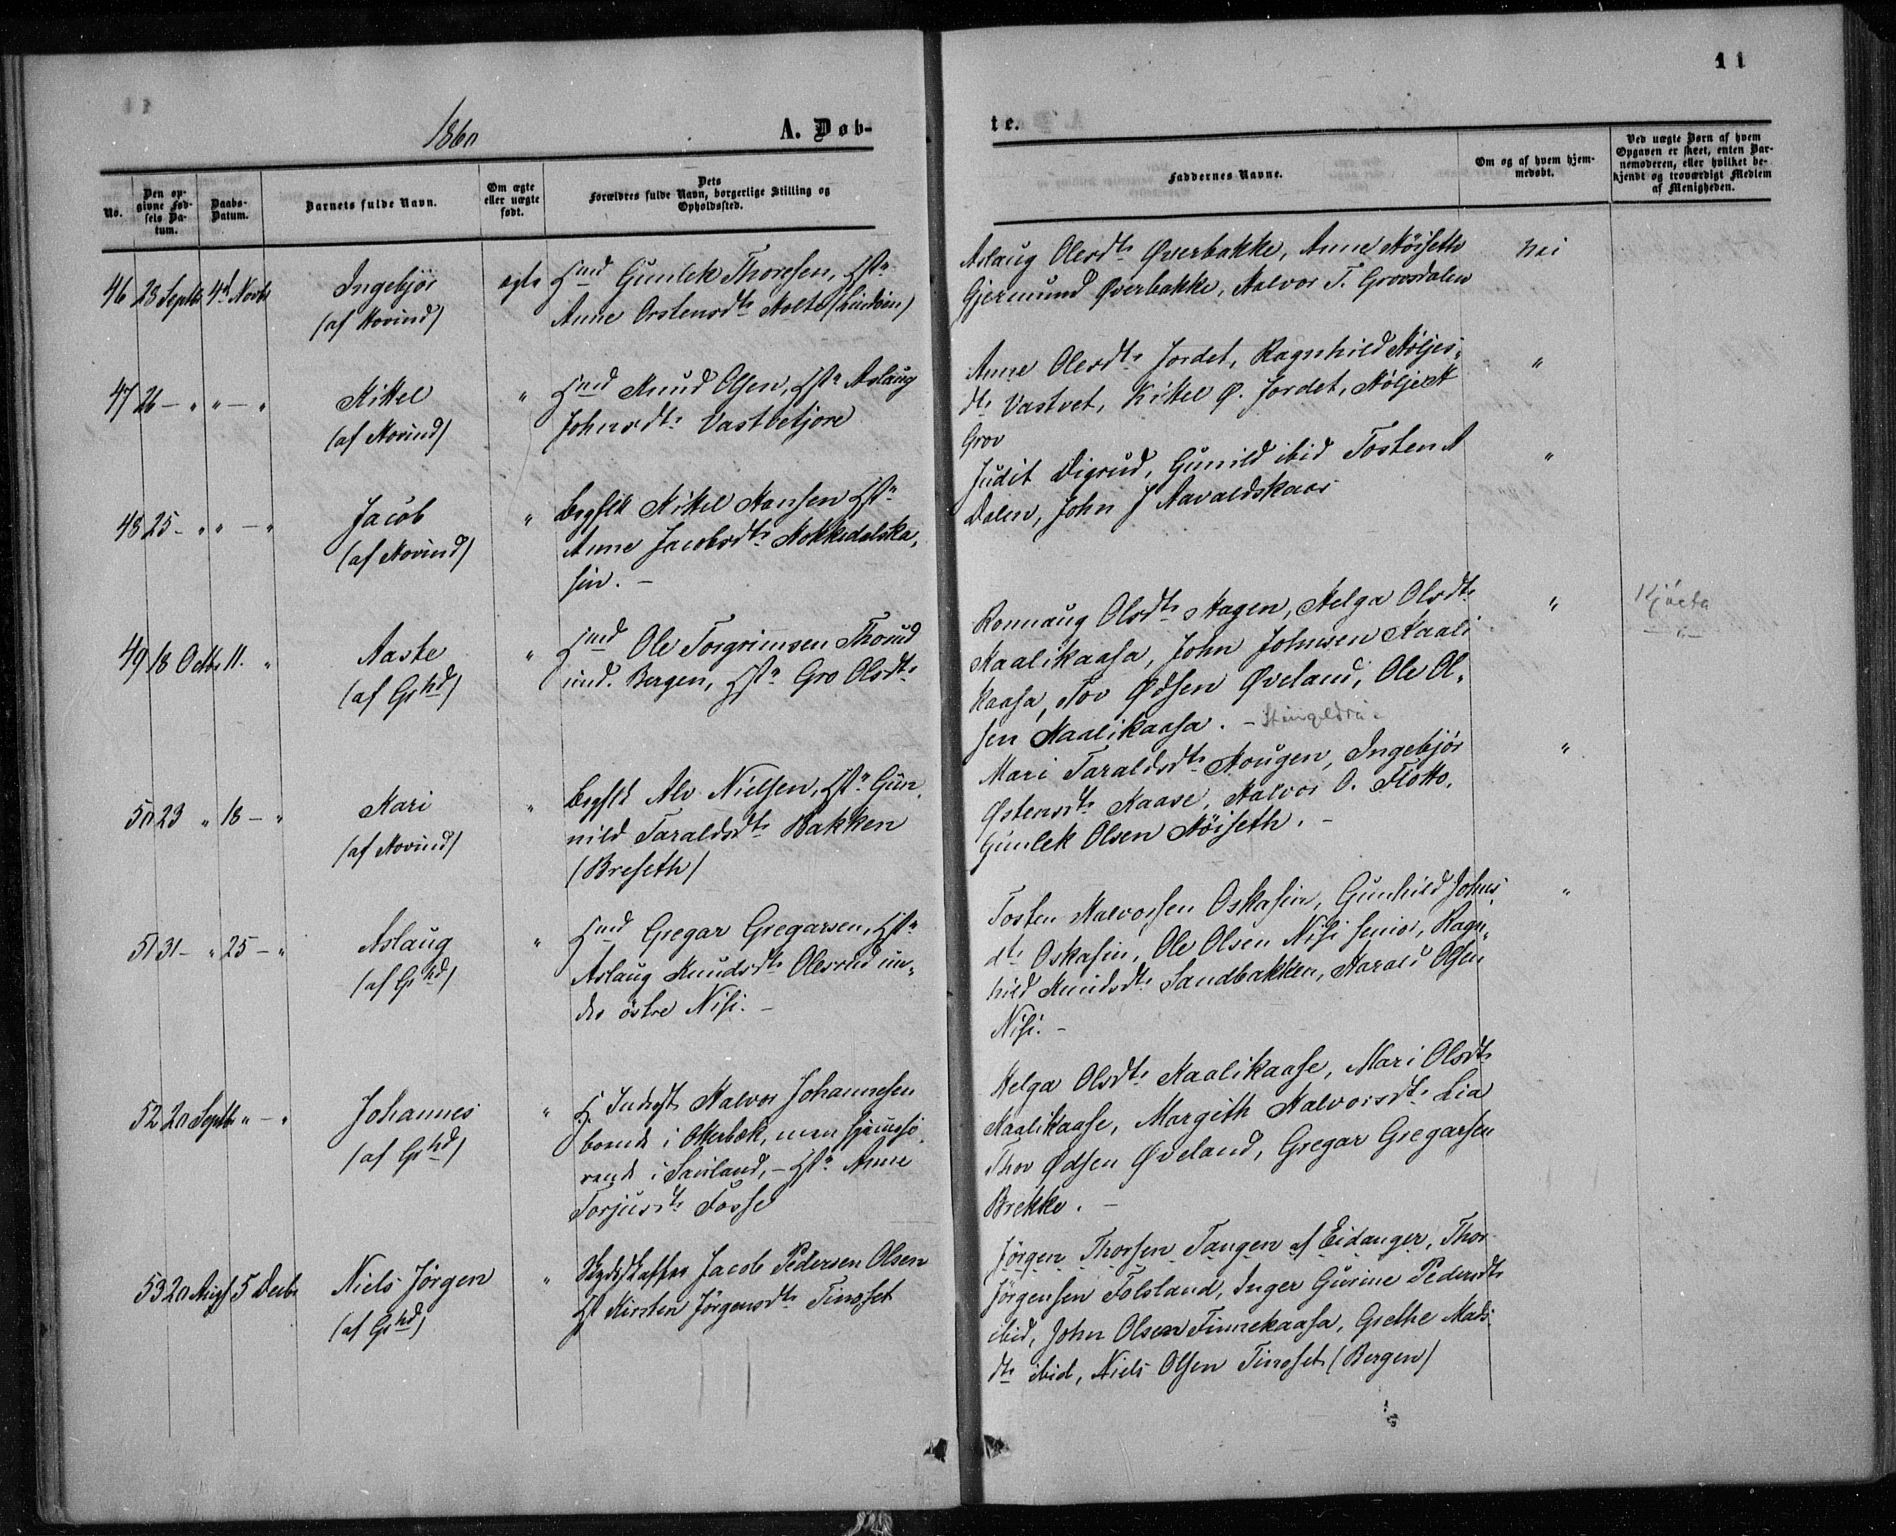 11
1860
A. Døb-
te.
No.
Den op-
givne Fød-
sels Da-
tum.
Daabs-
Datum.
Barnets fulde Navn.
Om ægte
eller uægte
født.
Dets
Forældres fulde Navn, borgerlige Stilling og
Opholdssted.
Faddernes Navne.
Om og af hvem hjem-
medøbt.
Ved uægte Børn af hvem
Opgaven er skeet, enten Bar-
nemoderen, eller hvilket be-
kjendt og troværdigt Medlem
af Menigheden.
46 28 Septb 4d Novb Ingebjør
(af Hovind)
egte
Hmd Gunlek Thoresen, Hst
Anne Orstensdtr Holte (Lindvin)
Aslaug Olesdtr Øverbakke, Anne Høiseth
Gjermund Øverbakke, Halvor T. Grovsdalen
Nei
47 26 — " " — " Kittel
(af Hovind)
"
Hmd Knud Olsen, Hstr Aslaug
Johnsdtr Vastvetjore
Anne Olesdtr Jordet, Ragnhild Høljes-
dtr Vastvet, Kittel Ø. Jordet, Høljer H
Grov
"
48 25 - " " — " Jacob
(af Hovind)
"
Bygslm Kittel Hansen Hstr
Anne Jacobsdtr Nokkedalska-
sin. —
Judit Digrud, Gunild ibid Tosten A
Dalen, John J Aavaldskaas
"
49 18 Octb 11. " Aaste
(af Grhd)
"
Hmd Ole Torgrimsen Thorud
und. Bergen, Hstr Gro Olsdtr
Ronnaug Olsdtr Hagen, Helga Olsdtr
Haalikaasa, John Johnsen Haali
kaasa, Tov Ødsen Øveland, Ole Ol-
sen Haalikaasa. —
"
50 23 " 18 — " Kari
(af Hovind)
"
Bygslm Alv Nielsen, Hstr Gun-
nild Taraldsdtr Bakken
(Breseth)
Mari Taraldsdtr Hougen, Ingebjør
Østensdtr Kaave, Halvor O. Flotto,
Gunlek Olsen Høiseth. —
"
51 31 — " 25 — " Aslaug
(af Grhd)
"
Hmd Gregar Gregarsen, Hstr
Aslaug Knudsdtr Olesrud un-
der östre Nisi. —
Tosten Halvorsen Oskasin, Gunhild Johns-
dtr Oskasin, Ole Olsen Nisi senior, Ragn-
hild Knudsdtr Sandbakken, Harald Olsen
Nisi. —
"
52 20 Septb " — " Johannes
(af Grhd)
"
Indrst Halvor Johannesen
boende i Otterbæk, men hjemhö-
rende i Sauland, — Hstr Anne
Torjusdtr Fosse
Helga Olsdtr Haalikaase, Mari Olsdtr
Haalikaase, Margith Halvorsdtr Lia
Thov Ødsen Øveland, Gregar Gregarsen
Brekke. —
53 20 Aug 5 Decb Niels Jørgen
(af Grhd)
"
Jacob Pedersen Olsen
Hst Kirsten Jørgensdtr Tinoset
Jørgen Thorsen Tangen af Eidanger, Thor
Jørgensen Folsland, Inger Gurine Pedersdtr
ibid, John Olsen Finnekaasa, Grethe Mads-
dtr ibid, Niels Olsen Tinoset (Bergen)